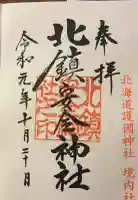 奉拝
北海道護國神社 境内社
北鎮安全神社
令和元年十月二十日